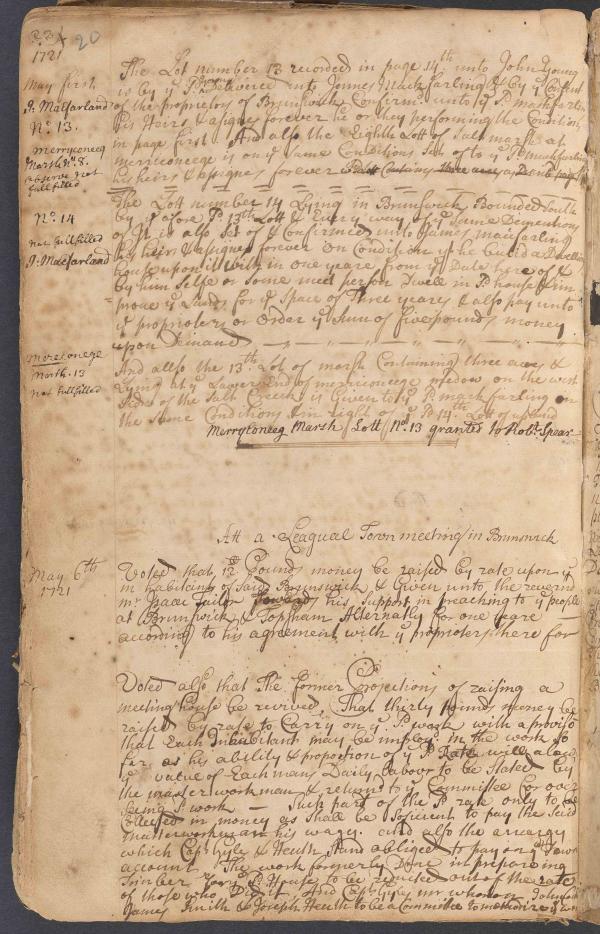 20
1721
May first
J: Macfarland
No. 13.
merryconeeg
Marsh No. 8.
observe not
full filled
The Lot number 13 recorded in page 14th unto John Young
is by ye Delivered unto James Mackfarling & by ye Consent
of the proprietors of Brunswick Confirmd unto ye sd mackfarlin
his Heirs & assignes forever he or they performing the Conditions
in page first. And also the Eighth Lott of Salt marsh at
merriconeege is on ye same Conditions Set of to ye sd mackfarling
his heirs & assignes forever
No. 14
not full filled
J: Macfarland
The Lott number 14 Lying in Brunswick Bounded South
by ye afore sd 13th Lott & Every way of ye Same Dementions
of It is also Set of & Confirmed unto James mackfarling
his heirs & assignes forever On Condition yt he build a Dwelling
house upon it with in one yeare from ye Date here of &
by him Selfe or Some meet person Dwell in sd house & im
prove ye Lands for ye Space of Three years & also pay unto
ye proprietors or order ye Sum of five pounds money
upon Demand
Mereconege
Marsh. 13
not full filled
And allso the 13th Lot of marsh Containing three acres &
Lying at ye Lower End of merriconeege medow on the west
Side of the Salt Creek is Given to ye sd mackfarling on
the Same Conditions & in right of ye sd 14th Lott of upland
Merryconeeg Marsh Lott No. 13 granted to Robt. Spear
Att a Leagual Town meeting in Brunswick
May 6th
1721
Voted that 12 Pounds money be raised by rate upon ye
inhabitants of Said Brunswick & Given unto the reverend
mr Isaac Tailor towards his Support in preaching to ye people
at Brunswick & Topsham Alternatly for one yeare
according to his agreement with ye proprietors there for
Voted also that The former Projections of raising a
meeting house be revived, That thirty pounds money be
raised by rate to Carry on ye sd work with a proviso
that Each Inhabitant may be imployd in the work so
far as his ability & proportion of ye sd Rate will allow
ye value of Each mans Daily Labour to be Stated by
the master workman & return to ye Committee for over
Seeing sd work — Such part of the sd rate only to be
Collected in money as Shall be Suficient to pay the Said
master workman his wages. and also the arrears
which Capt Gyles & Heath Stand obliged to pay on ye Town
account. The work formerly Done in preparing
Timber for sd House to be out of the rate
of those who Did it. And Capt Gyles mr
James Smith & Joseph Heath to be a Committee to